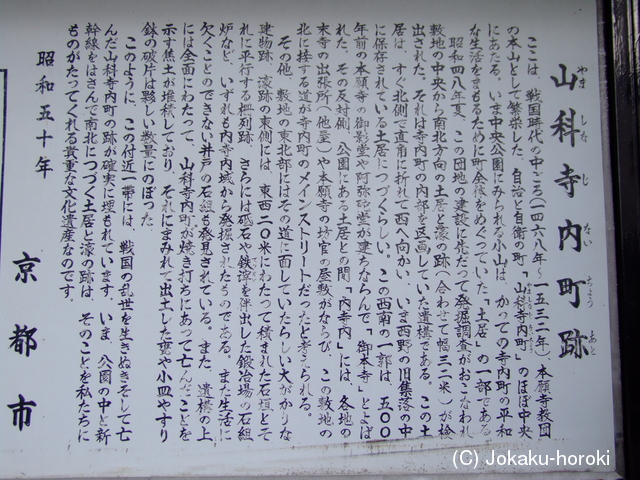 山科寺内町跡
やましなじないちょうあと
ここは、戦国時代の中ごろ(一四六八年〜一五三二年)、本願寺教団
の本山として繁栄した、自治と自衛の町「山科寺内町」のほぼ中央
にあたる。いま中央公園にみられる小山は、かつての寺内町の平和
な生活をまもるために町全体をめぐっていた「土居」の一部である
昭和四八年夏、この団地の建設に先だって発掘調査がおこなわれ
敷地の中央から南北方向の土居と濠の跡(合わせて幅三二米)が検
出された。それは寺内町の内部を区画していた遺構である。この土
居は、すぐ北側で直角に折れて西へ向かい、いま西野の旧集落の中
に保存されている土居につづくらしい。この西南の一郭は、五〇〇
年前の本願寺の御影堂や阿弥陀堂が建ちならんで「御本寺」とよば
れた。その反対側、公園にある土居との間「内寺内」には、各地の
末寺の出張所(他屋)や本願寺の坊官の屋敷がならび、この敷地の
北に接する道が寺内町のメインストリートだったと考えられる。
その他、敷地の東北部にはその道に面していたらしい大がかりな
建物跡、濠跡の東側には、東西二〇米にわたって積まれた石垣とそ
れに平行する柵列跡、さらには砥石や鉄滓を伴出した鍛冶場の石組
炉など、いずれも内寺内域から発掘されたものである。また生活に
欠くことのできない井戸の石組も発見されている。また、遺構の上
には全面にわたって、山科寺内町が焼き打ちにあって亡んだことを
示す焦土が堆積しており、それに含みれて出土した甕や小皿やすり
鉢の破片は夥しい数量にのぼった
このように、この付近一帯には、戦国の乱世を生きぬきそして亡
んだ山科寺内町の跡が確実に埋もれています。いま、公園の中と新
幹線をはさんで南北につづく土居と濠の跡は、そのことを私たちに
ものがたってくれる貴重な文化遺産なのです。
昭和五十年
京都市
(C) Jokaku-horoki